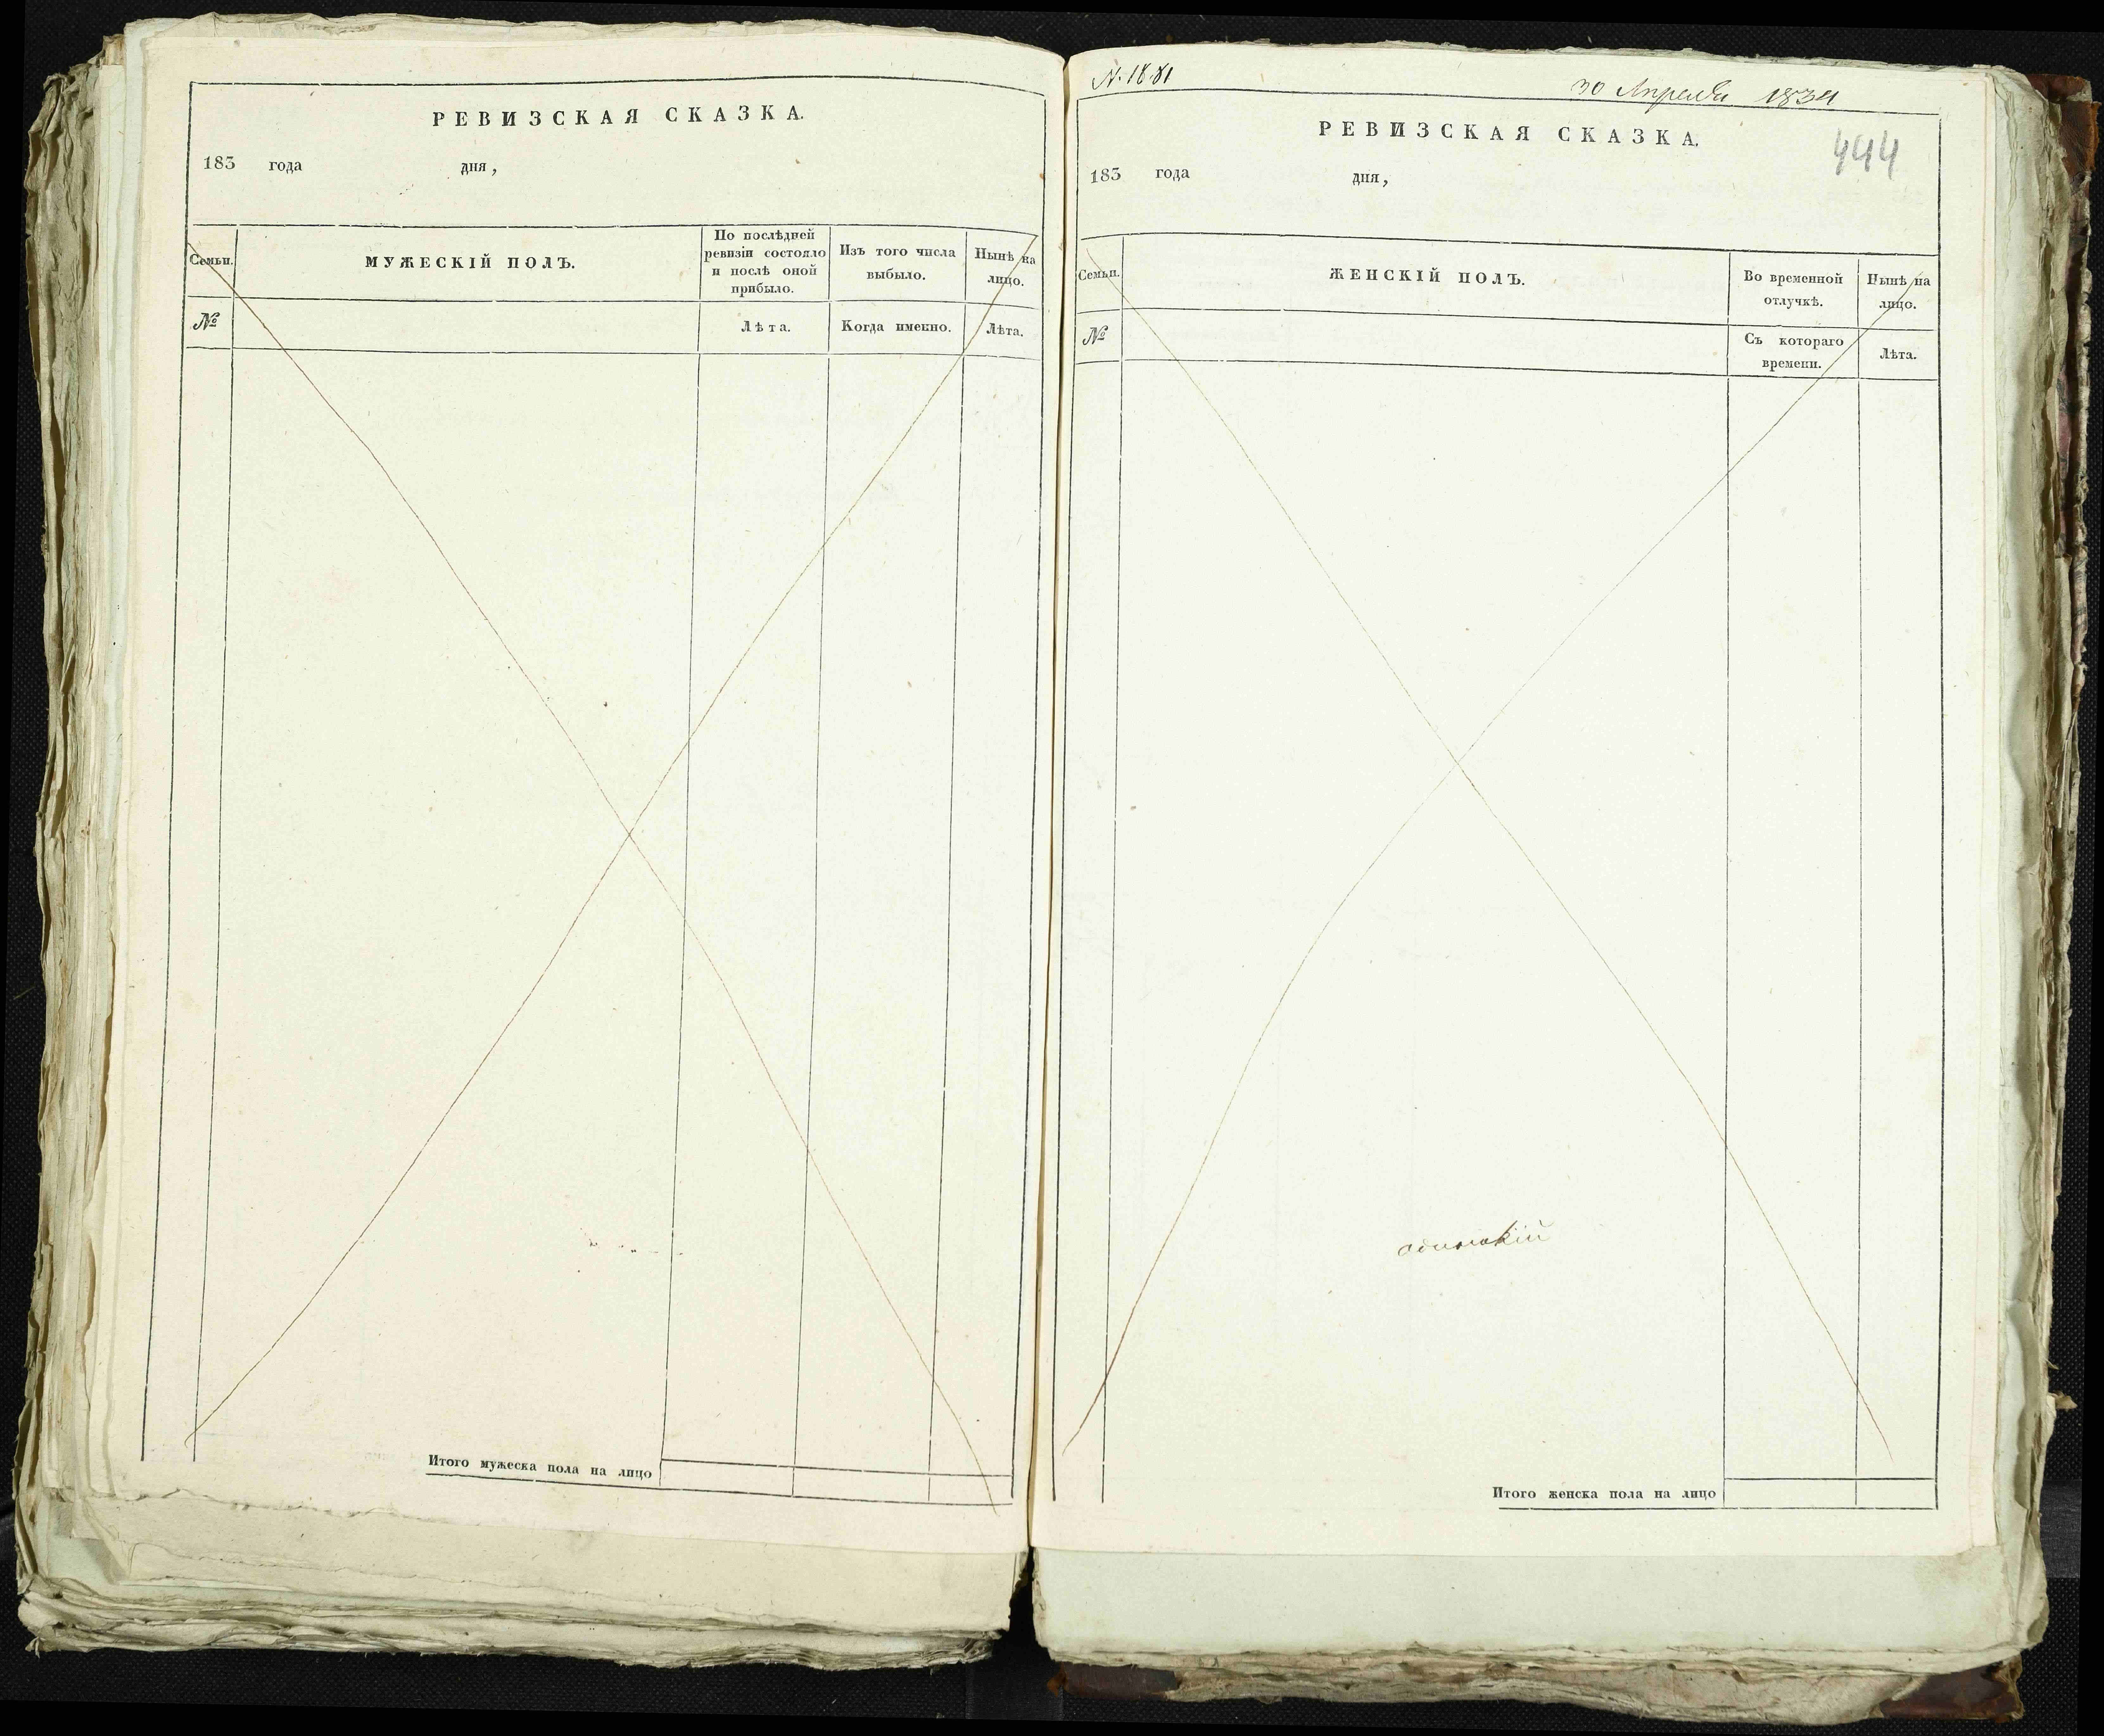 РЕВИЗСКАЯ СКАЗКА.
183 года дня,
Семьи.
МУЖЕСКІЙ ПОЛЪ.
По послѣдней
ревизіи состояло
и послѣ оной
прибыло.
Изъ того числа
выбыло.
Нынѣ на
лицо.
№
Лѣта.
Когда именно.
Лѣта.
Итого мужеска пола на лицо
N. 1881
30 Апреля 1834
444
РЕВИЗСКАЯ СКАЗКА.
183 года дня,
Семьи.
ЖЕНСКІЙ ПОЛЪ.
Во временной
отлучкѣ.
Нынѣ на
лицо.
№
Съ котораго
времени.
Лѣта.
одинокій
Итого женска пола на лицо